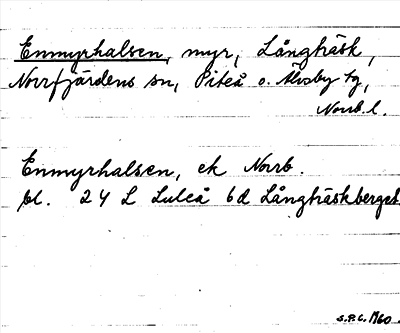 Enmyrhalsen, myr, Långträsk,
Norrfjärdens sn, Piteå o. Älvsby tg,
Norrb l.
Enmyrhalsen, ek Norrb.
bl. 24 L Luleå 6d Långträskberget
S.P.C. 1960.